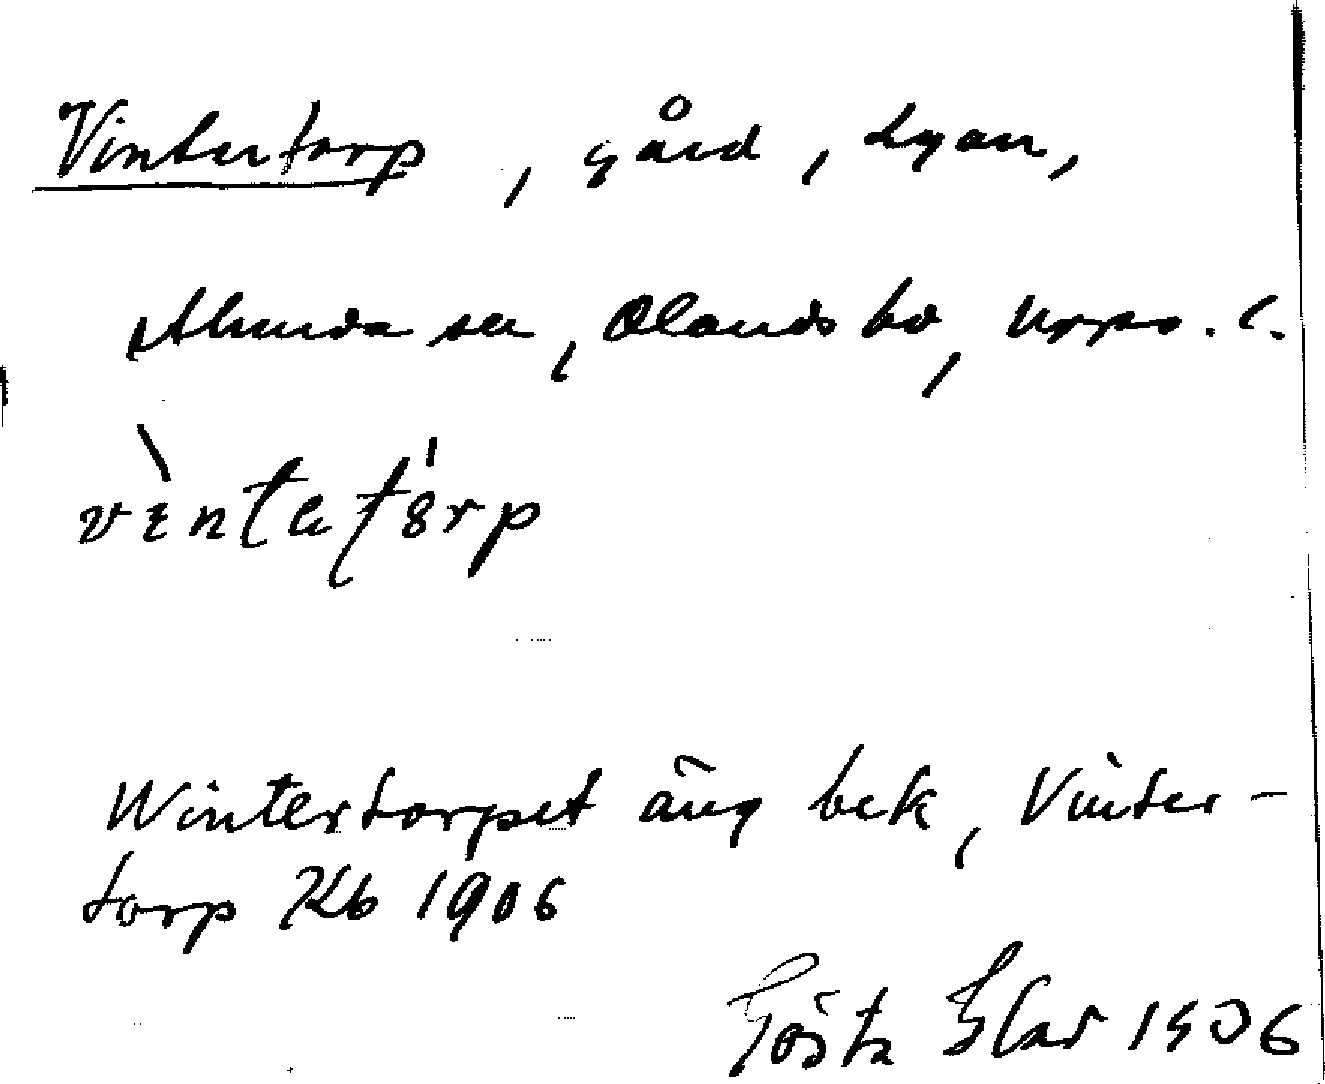 Vintertorp, gård, Lyan,
Alunda sn, Olands hd, Upps. l.
vìntetȣ́rp
Wintertorpet äng bek, Vinter-
torp Kb 1906
Gösta